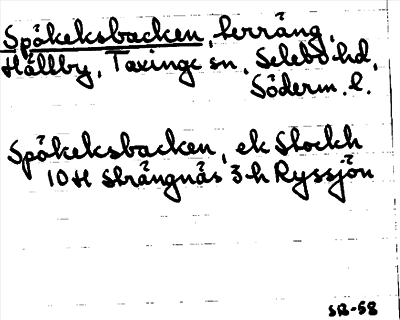 Spökeksbacken, terräng,
Hällby, Taxinge sn, Selebo hd,
Söderm. l.
Spökeksbacken, ek Stockh
10H Strängnäs 3 h Ryssjön
SB-58